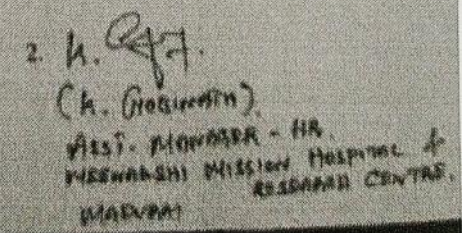 2. K.
(K.
ASST. MANAGER - HR.
MEENAKSHI MISSION HOSPITAL &
RESEARCH CENTRE,
MADURAI